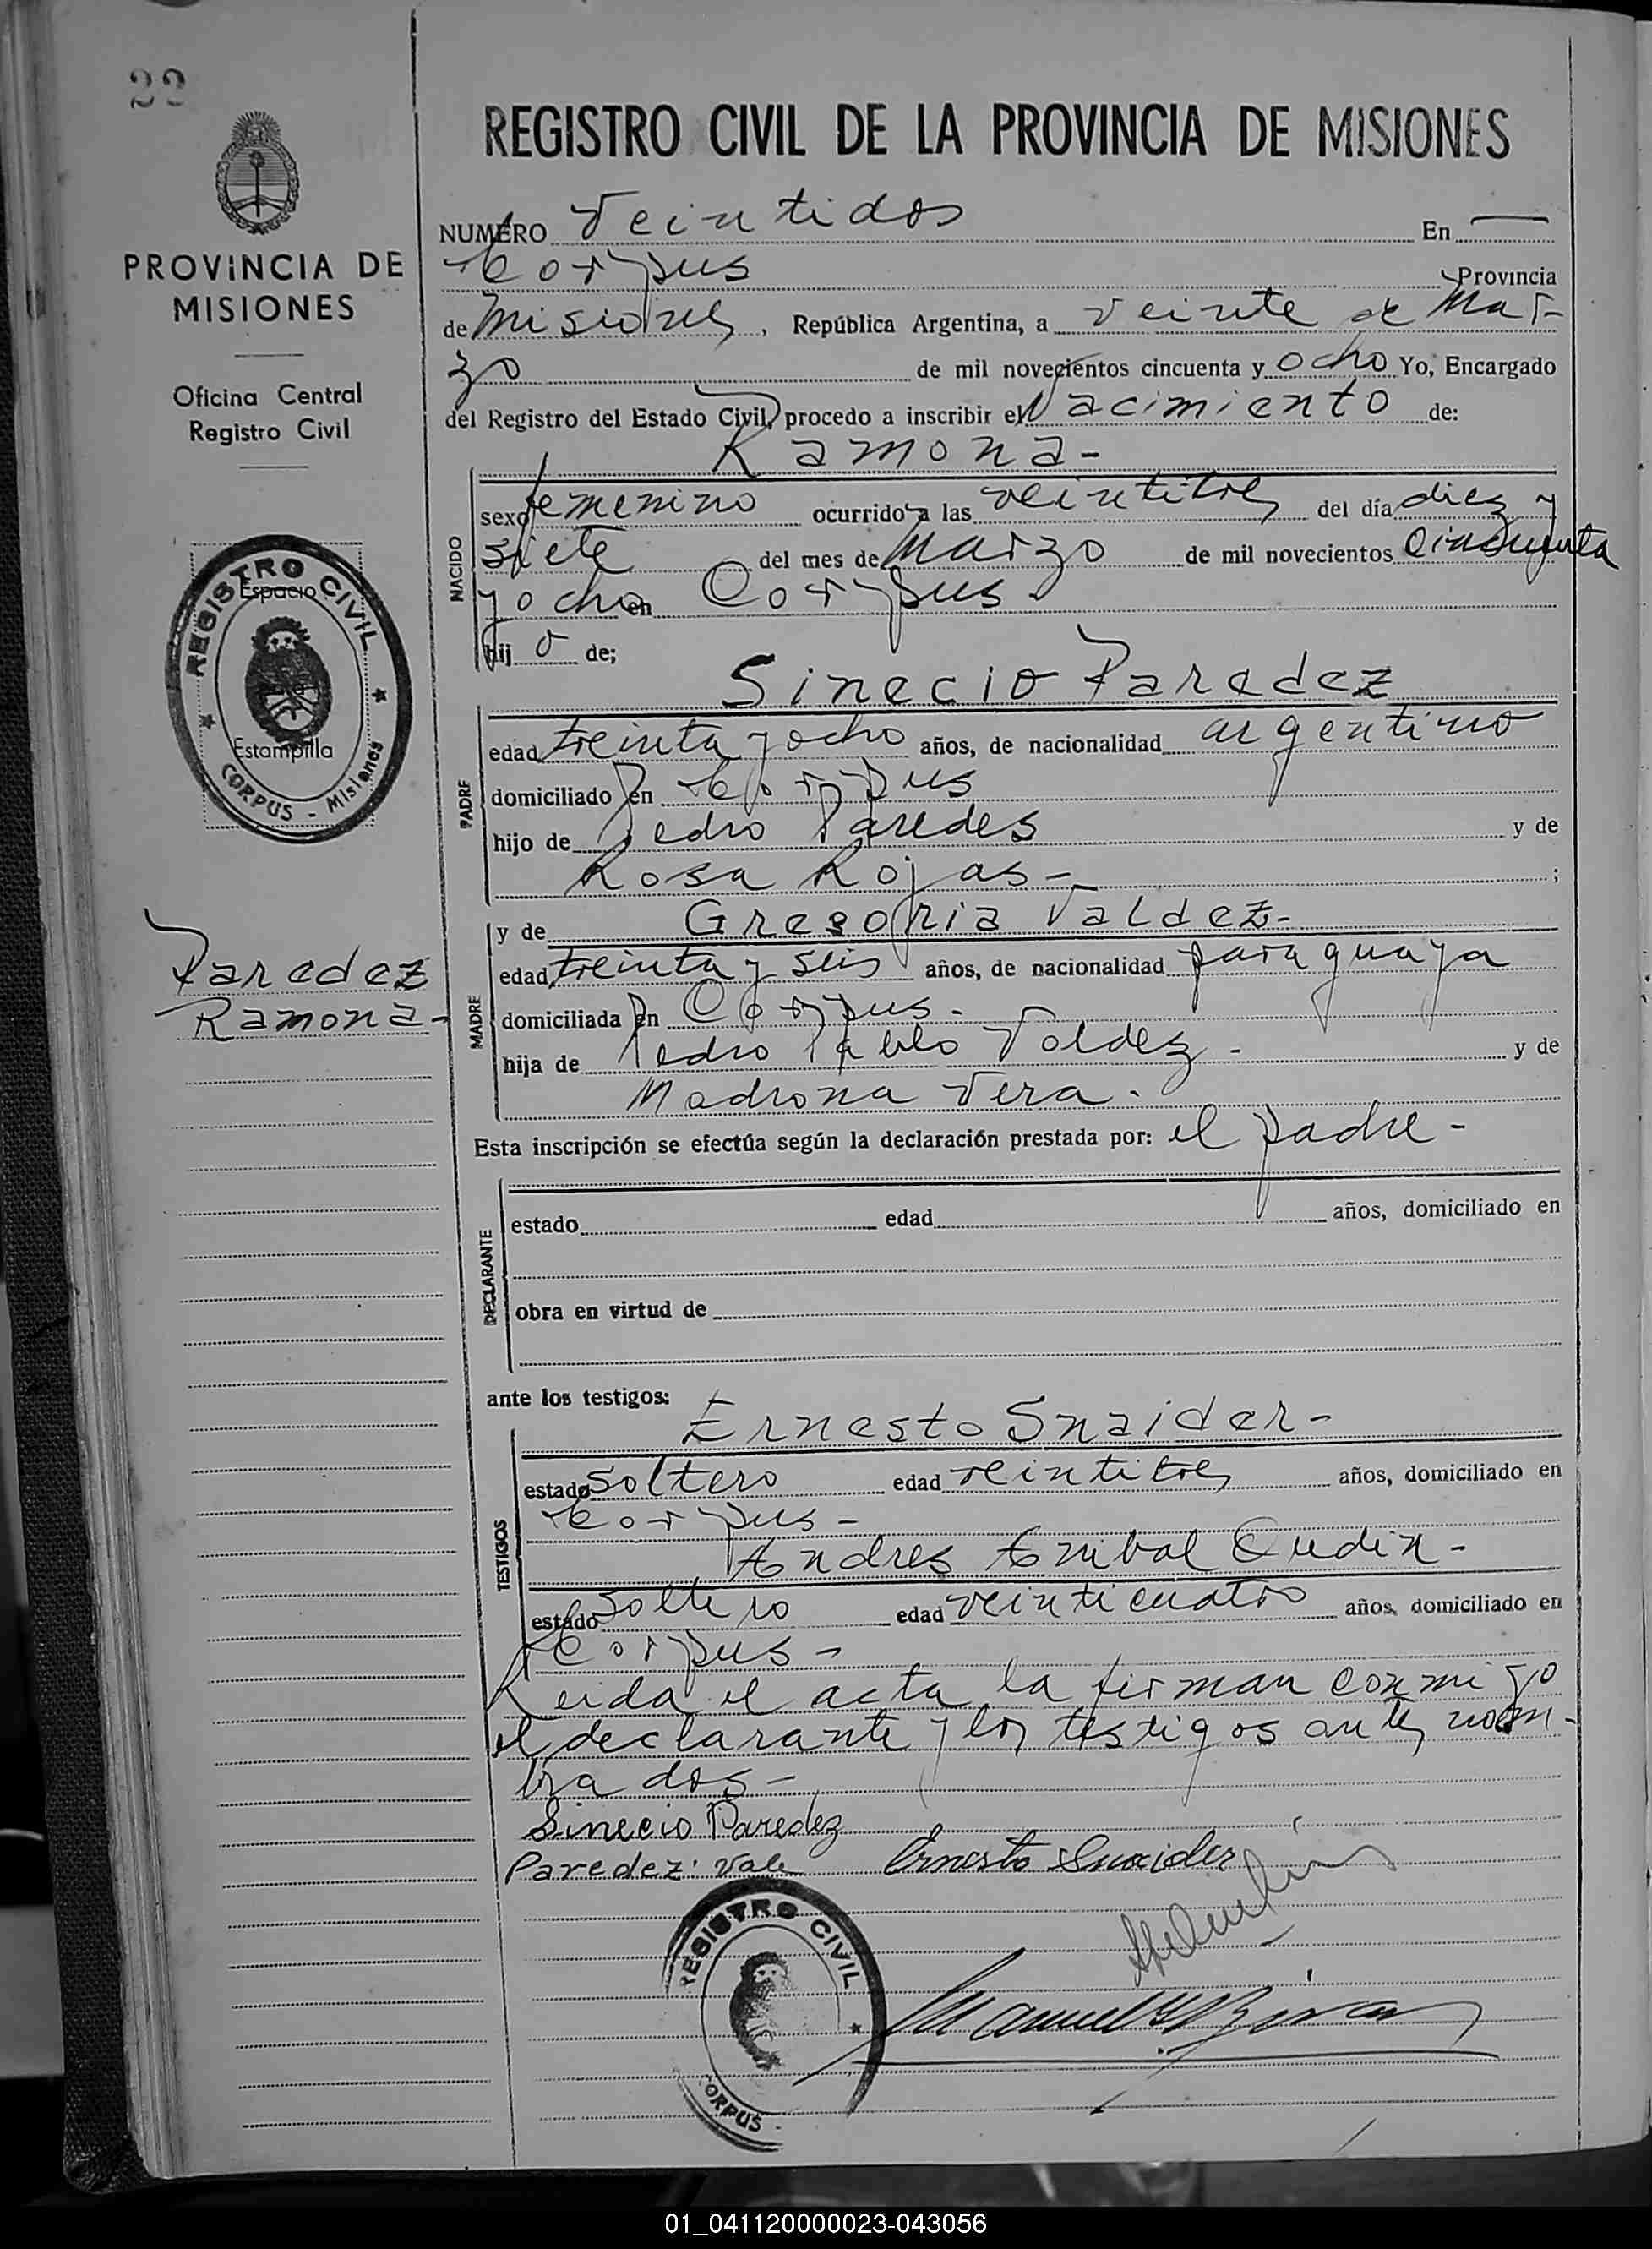 22
PROVINCIA DE
MISIONES
Oficina Central
Registro Civil
REGISTRO CIVIL
Espacio
Estampilla
CORPUS - Misiones
Paredez
Ramona-
REGISTRO CIVIL DE LA PROVINCIA DE MISIONES
NUMERO Veintidos En
Corpus Provincia
de Misiones, República Argentina, a veinte de Mar-
zo de mil novecientos cincuenta y ocho Yo, Encargado
del Registro del Estado Civil, procedo a inscribir el Nacimiento de:
Ramona-
NACIDO
sexo femenino ocurrido a las veintitres del día diez y
siete del mes de Marzo de mil novecientos cincuenta
y ocho en Corpus
hij o de;
Sinecio Paredez
PADRE
edad treinta y ocho años, de nacionalidad argentino
domiciliado en Corpus
hijo de Pedro Paredes y de
Rosa Rojas- ;
y de Gregoria Valdez-
MADRE
edad treinta y seis años, de nacionalidad paraguaya
domiciliada en Corpus-
hija de Pedro Pablo Valdez- y de
Madrona Vera.
Esta inscripción se efectúa según la declaración prestada por: el padre-
DECLARANTE
estado edad años, domiciliado en
obra en virtud de
ante los testigos:
Ernesto Snaider-
TESTIGOS
estado Soltero edad veintitres años, domiciliado en
Corpus-
Andres Anibal Oudin-
estado Soltero edad veinticuatro años, domiciliado en
Corpus-
Leida el acta la firman conmigo
el declarante y los testigos antes nom-
brados-
Sinecio Paredez
Paredez: Vale Ernesto Snaider
REGISTRO CIVIL
CORPUS -
01_041120000023-043056